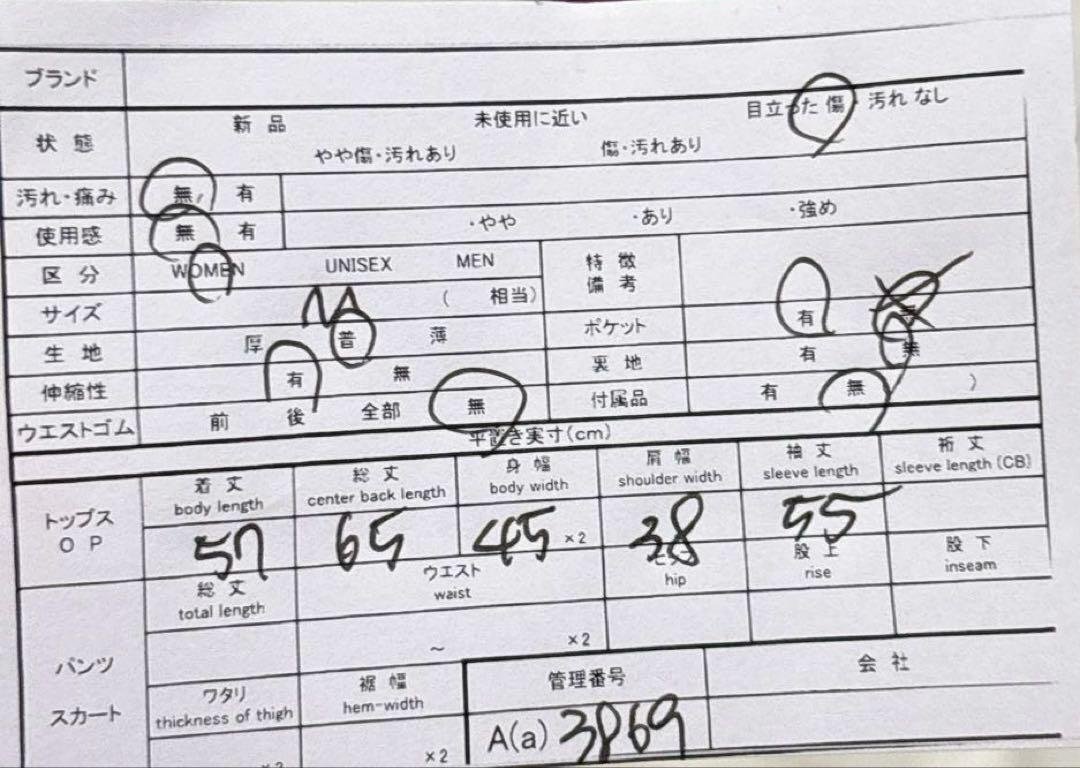 ブランド
状態 新品 未使用に近い 目立った傷・汚れなし
やや傷・汚れあり 傷・汚れあり
汚れ・痛み 無 有
使用感 無 有 ・やや ・あり ・強め
区分 WOMEN UNISEX MEN
特徴
備考
サイズ M ( 相当)
ポケット 有
生地 厚 普 薄
裏地 有 無
伸縮性 有 無
付属品 有 無 )
ウエストゴム 前 後 全部 無
平置き実寸(cm)
トップス
OP
着丈
body length
総丈
center back length
身幅
body width
肩幅
shoulder width
袖丈
sleeve length
裄丈
sleeve length (CB)
57 65 45 ×2 38 55
パンツ
スカート
総丈
total length
ウエスト
waist
hip
股上
rise
股下
inseam
~ ×2
ワタリ
thickness of thigh
裾幅
hem-width
×2
×2
管理番号
A(a) 3869
会社